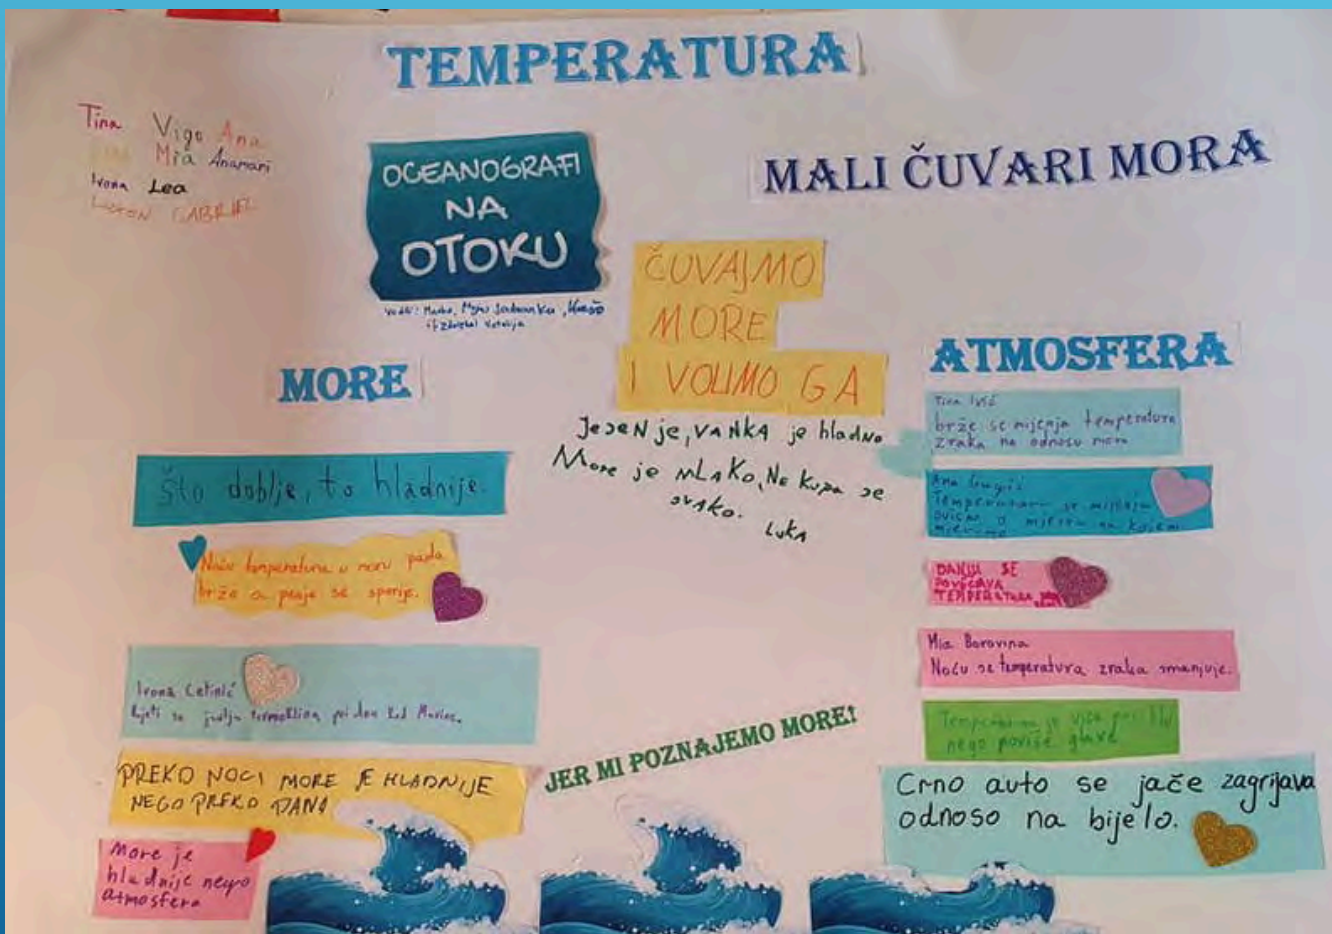 TEMPERATURA
Tina Vigo Ana
Mia Anamari
Ivona Lea
GABRIEL
OCEANOGRAFI
NA
OTOKU
MALI ČUVARI MORA
ČUVAJMO
MORE
I VOLIMO GA
Jesen je, VANKA je hladno
More je mLAKO, Ne kupa se
svako.
LUKA
MORE
Što doblje, to hladnije.
Noću temperatura u moru pada
brže a penje se sporije.
Ivona Cetinić
Ljeti se javlja termoklina pri dnu kod
PREKO NOCI MORE JE HLADNIJE
NEGO PREKO DANA
More je
hladnije nego
atmosfera
JER MI POZNAJEMO MORE!
ATMOSFERA
Tina
brže se mijenja temperatura
zraka na odnosu mora
Ana
Temperatura se mijenja
ovisno o mjestu na kojem
mjerimo
DANJU SE
POVEĆAVA
TEMPERATURA
Mia Borovina
Noću se temperatura zraka smanjuje.
Temperatura je viša pri tlu
nego poviše glave
Crno auto se jače zagrijava
odnoso na bijelo.